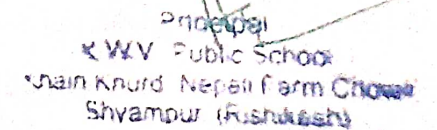 Principal
K.W.V. Public School
Khurd Nepali Farm Chowk
Shyampur (Rishikesh)